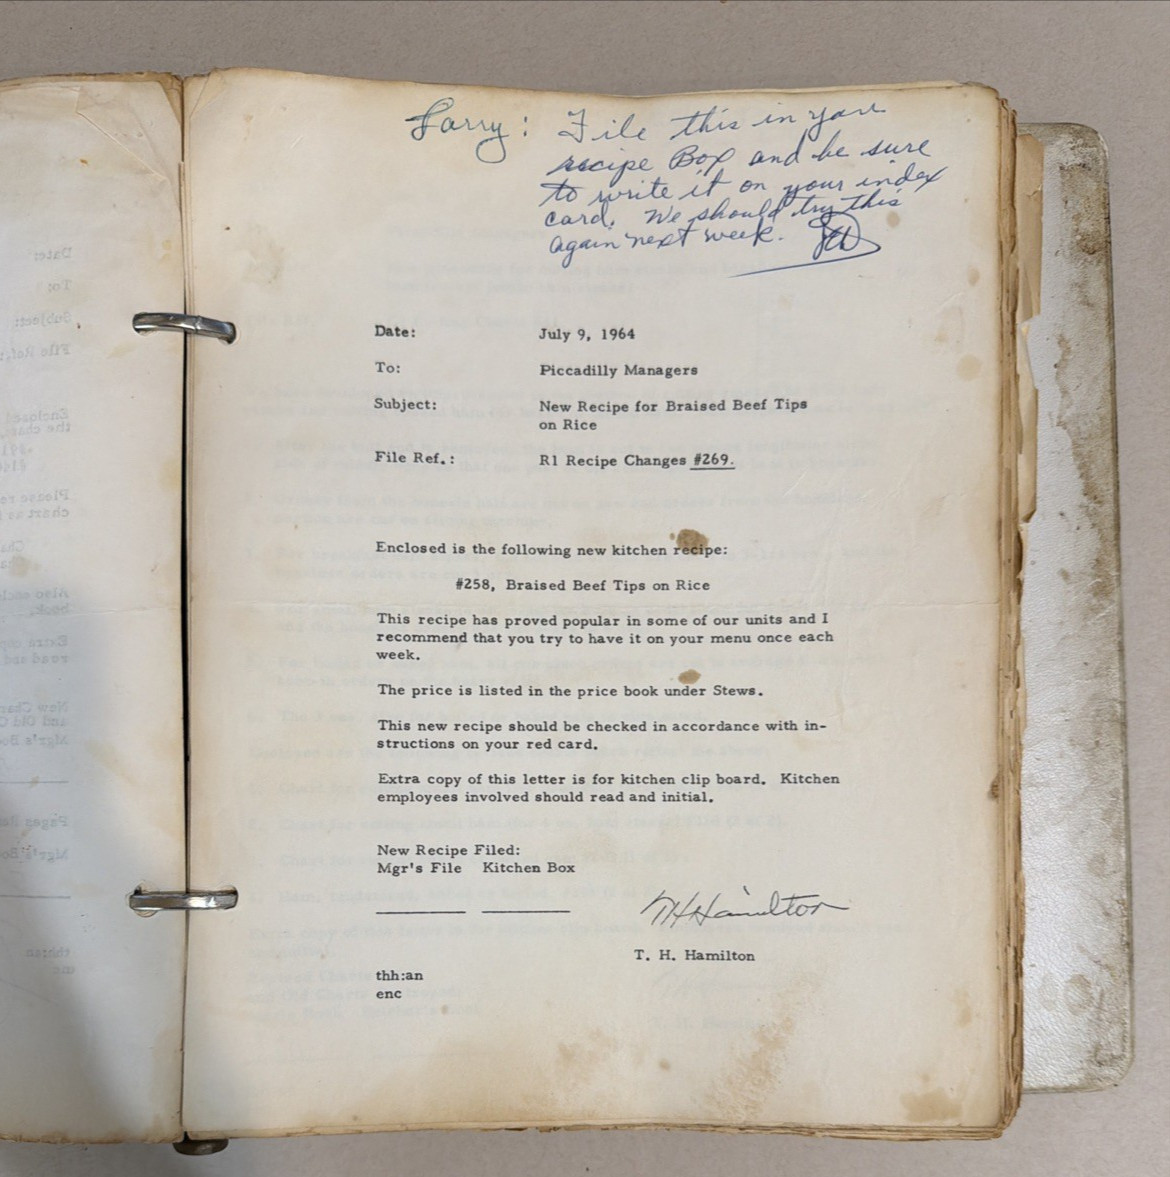 Larry: File this in your
recipe Box and be sure
to write it on your index
card. We should try this
again next week.
Date: July 9, 1964
To: Piccadilly Managers
Subject: New Recipe for Braised Beef Tips
on Rice
File Ref.: R1 Recipe Changes #269.
Enclosed is the following new kitchen recipe:
#258, Braised Beef Tips on Rice
This recipe has proved popular in some of our units and I
recommend that you try to have it on your menu once each
week.
The price is listed in the price book under Stews.
This new recipe should be checked in accordance with in-
structions on your red card.
Extra copy of this letter is for kitchen clip board. Kitchen
employees involved should read and initial.
New Recipe Filed:
Mgr's File Kitchen Box
THHamilton
T. H. Hamilton
thh:an
enc